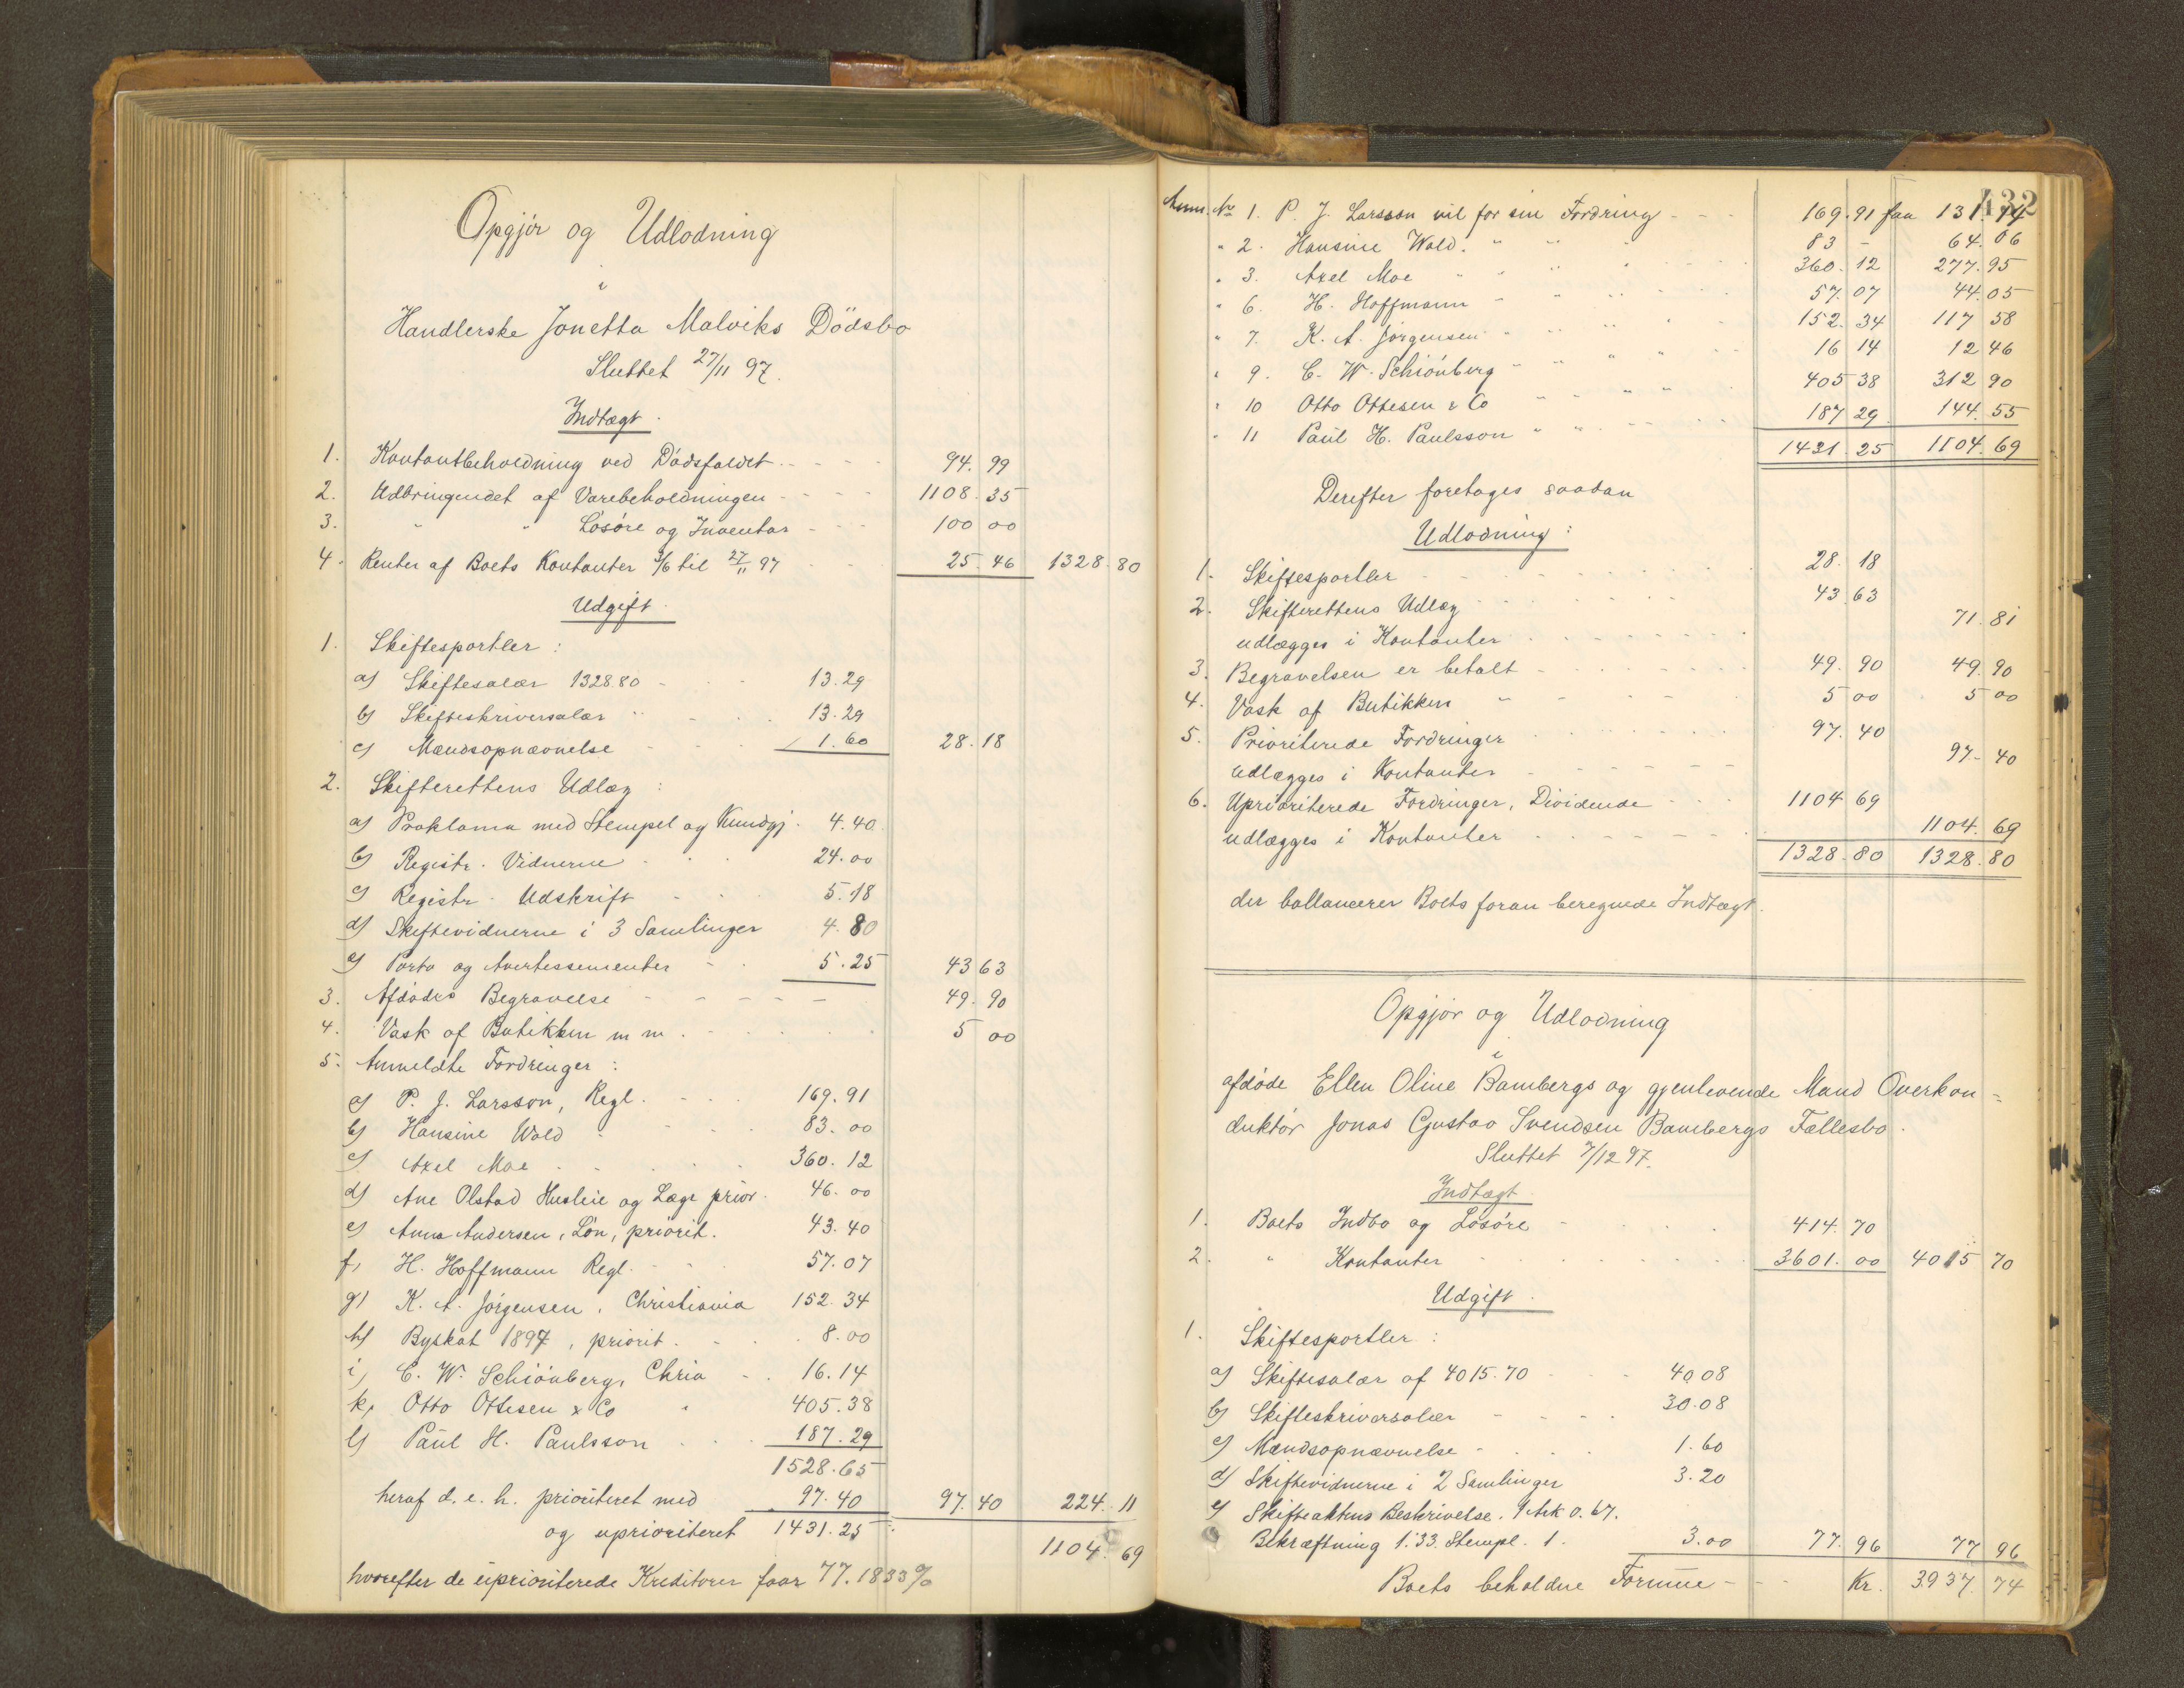 Opgjör og Udlodning
i
Handlerske Jonetta Malviks Dödsbo
Sluttet 27/11 97.
Indtægt.
1. Kontantbeholdning ved Dödsfaldet - - - 94. 99
2. Udbringendet af Varebeholdningen - - - 1108. 35
3. " " Lösöre og Inventar - - - 100 00
4. Renter af Boets Kontanter 3/6 til 27/11 97 - - 25. 46 1328. 80
Udgift.
1. Skiftesportler :
a) Skiftesalær 1328.80 - - - 13.29
b) Skifteskriversalær " - - - 13.29
c) Mændsopnævnelse - - - 1.60 28. 18
2. Skifterettens Udlæg :
a) Proklama med Stempel og Kundgj. 4.40
b) Registr. Vidnerne - - - 24.00
c) Registr. Udskrift - - - 5.18
d) Skiftevidnerne i 3 Samlinger 4.80
e) Porto og Avertissementer - - 5.25 43 63
3. Afdödes Begravelse - - - - - 49. 90
4. Vask af Butikken m m. - - - 5 00
5. Anmeldte Fordringer :
a) P. J. Larsson, Regl. - - - 169.91
b) Hansine Wold - - - 83.00
c) Axel Moe - - - 360.12
d) Ane Olstad Husleie og Læge prior. 46.00
e) Anna Andersen, Lön, priorit. 43.40
f, H. Hoffmann Regl. - - 57.07
g) K. A. Jörgensen, Christiania 152.34
h) Byskat 1897, priorit. - - - 8.00
i, C. W. Schiönberg, Chria - - 16.14
k, Otto Ottesen & Co " 405.38
l) Paul H. Paulsson - - - 187.29
1528.65
heraf d. e. h. prioriteret med 97.40 97. 40 224. 11
og uprioriteret 1431.25
1104. 69
hvorefter de uprioriterede Kreditorer faar 77.1833 %
132
Anm. No 1. P. J. Larsson vil for sin Fordring - - - 169. 91 faa 131. 14
" 2. Hansine Wold. " " " 83 - 64. 06
" 3. Axel Moe " " " " - - - 360. 12 277. 95
" 6. H. Hoffmann " " " " - - 57. 07 44. 05
" 7. K. A. Jörgensen " " " " - 152. 34 117 58
" 9. C. W. Schiönberg " " " " - - 16 14 12 46
" 10 Otto Ottesen & Co " " " " - 405 38 312 90
" 11 Paul H. Paulsson " " - - - 187 29 144. 55
1431. 25 1104. 69
Derefter foretages saadan
Udlodning :
1. Skiftesportler - - - - - 28. 18
2. Skifterettens Udlæg - - - - - 43. 63
udlægges i Kontanter - - - - - 71. 81
3. Begravelsen er betalt - - - - - 49. 90 49. 90
4. Vask af Butikken " - - - 5 00 5 00
5. Prioriterede Fordringer - - - - - 97. 40
udlægges i Kontanter - - - - - 97- 40
6. Uprioriterede Fordringer, Dividende - - - 1104 69
udlægges i Kontanter - - - - - 1104. 69
1328. 80 1328. 80
der ballancerer Boets foran beregnede Indtægt.
Opgjör og Udlodning
i
afdöde Ellen Oline Bambergs og gjenlevende Mand Overkon=
duktör Jonas Gustav Svendsen Bambergs Fællesbo.
Sluttet 7/12 97.
Indtægt.
1. Boets Indbo og Lösöre - - - - 414. 70
2. " Kontanter - - - - - 3601. 00 4015 70
Udgift.
1. Skiftesportler :
a) Skiftesalær af 4015.70 - - - 40 08
b) Skifteskriversalær - - - - 30.08
c) Mændsopnævnelse - - - - 1.60
d) Skiftevidnerne i 2 Samlinger 3.20
e) Skifteaktens Beskrivelse. 1 Ark 0.67.
Bekræftning 1.33. Stempl. 1. 3.00 77. 96 77 96
Boets beholdne Formue - - - Kr. 3937. 74